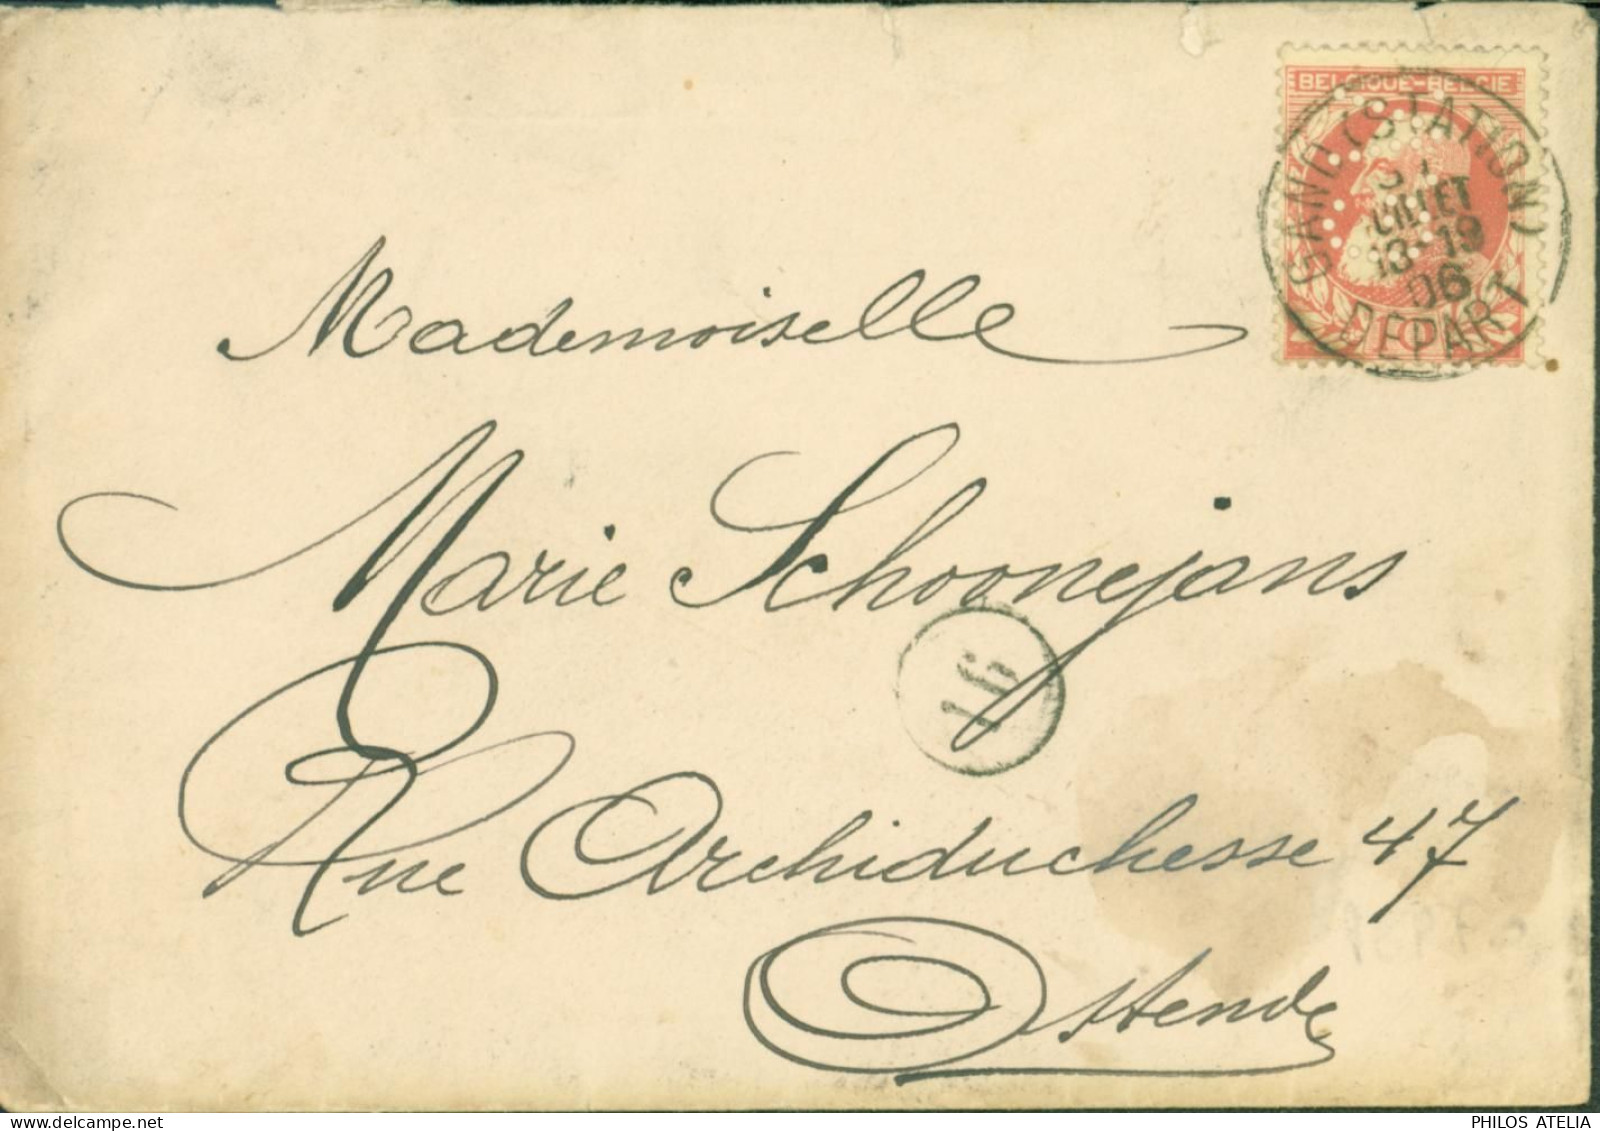 BELGIQUE-BELGIE
GAND (STATION)
JUILLET
13-19
06
DEPART
10
Mademoiselle
Marie Schoonejans
16
Rue Archiduchesse 47
Ostende
PHILOS ATELIA